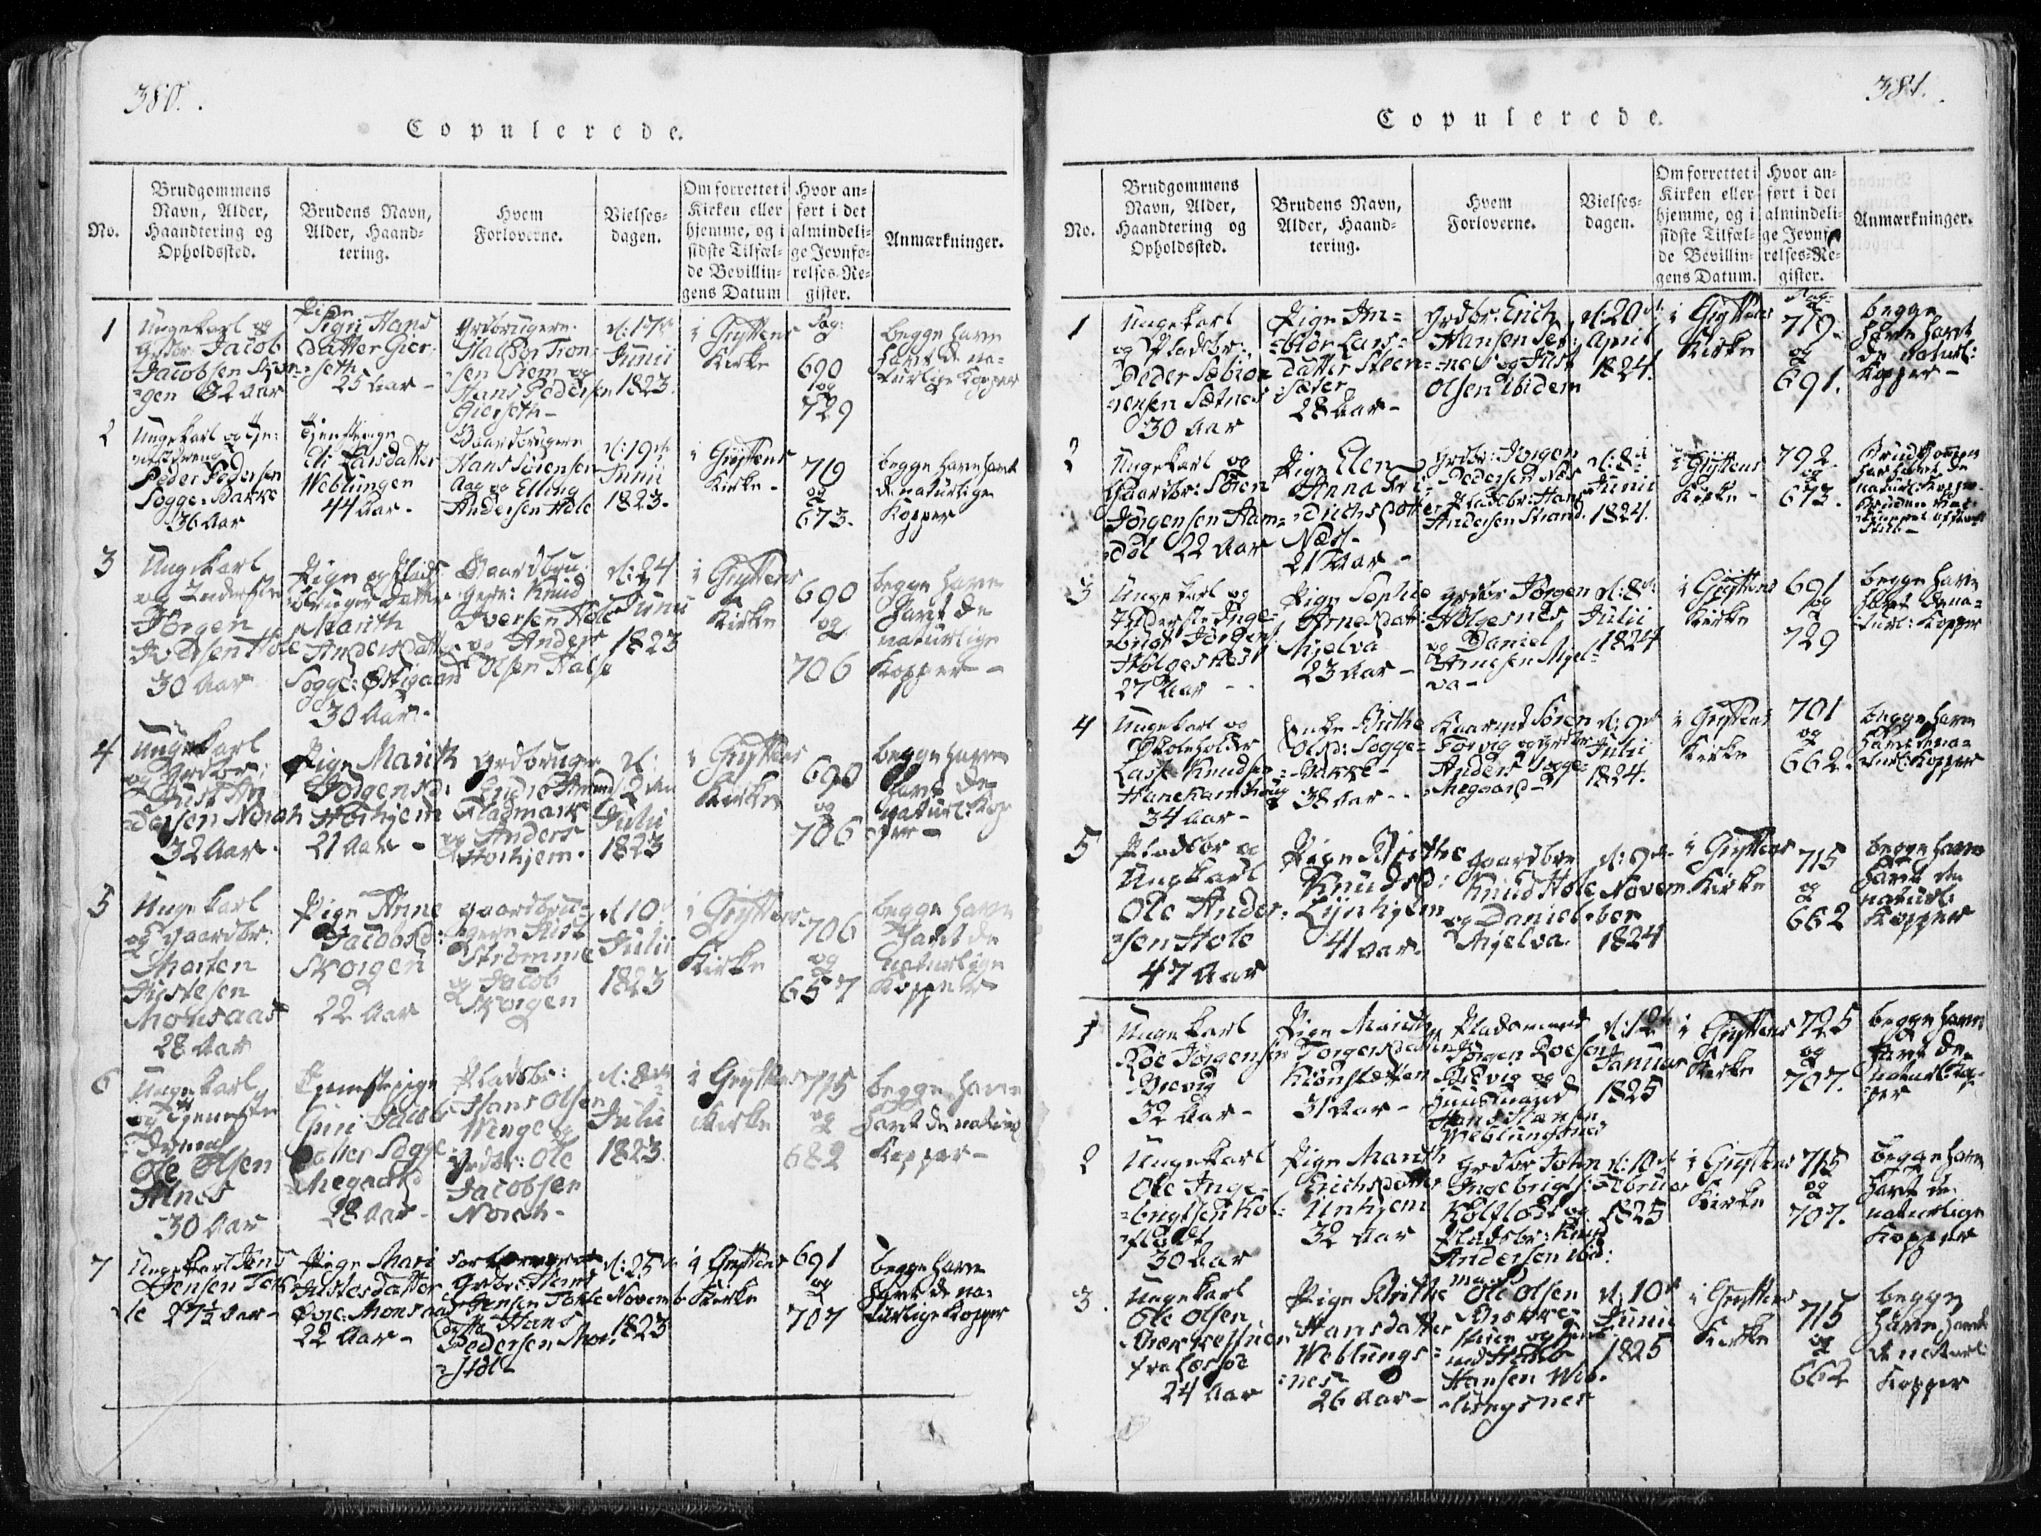 380.
Copulerede.
No.
Brudgommens
Navn, Alder,
Haandtering og
Opholdssted.
Brudens Navn,
Alder, Haand-
tering.
Hvem
Forloverne.
Vielses-
dagen.
Om forrettet i
Kirken eller
hjemme, og i
sidste Tilfæl-
de Bevillin-
gens Datum
Hvor an-
ført i det
almindeli-
ge Jevnfø-
relses-Re-
gister.
Anmærkninger.
1
Ungekarl og
Jacob
Jacobsen
32 Aar
Pige
Hans
datter Gier-
seth
25 Aar
Grdbrugere
Haldor Tron-
sen og
Hans Pedersen
Gierseth
d: 17de
Junii
1823.
i Gryttens
Kirke
Pag:
690
og
729
begge have
havt de na-
turlige Kopper
2
Ungekarl og
Peder Pedersen
Sogge-Bakke
36 Aar
Tjenstepige
Larsdatter
Weblungen
44 Aar.
Gaardbrugere
Hans Sørensen
Aag og Elling
Andersen Hole
d: 19de
Junii
1823.
i Gryttens
Kirke
719
og
673.
begge have havt
de naturlige
Kopper
3
Ungekarl
og Inderste
Jørgen
Iversen Hole
30 Aar
Pige og Plads-
bruger Datter
Marith
Andersdatter
Sogge-Østigaard
30 Aar.
Gaardbru-
gere: Knud
Iversen Hole
og Anders
Olsen Halse
d: 24
Junii
1823
i Gryttens
Kirke
690
og
706
begge have
havt de
naturlige
Kopper
4
Ungekarl
og Grdbr:
Just An-
dersen Norah
32 Aar.
Pige Marith
Torgersd:
Horhjem
21 Aar
Grdbruger
Fladmark
og Anders
Horhjem.
d:
2den
Julii
1823
i Gryttens
Kirke
690
og
706
begge have
havt de
naturl: Kop
per
5
Ungekarl
og Gaardbr:
Morten
Justesen
Monsaas
28 Aar
Pige Anne
Jacobsd:
Skorgen
22 Aar
Gaardbru-
gere Just
Strømme
og Jacob
Skorgen
d 10de
Julii
1823
i Gryttens
Kirke
706
og
657
begge have
havt de
naturlige
Kopper
6
Ungekarl
og Tjeneste
Ole Olsen
30 Aar
Tjenstepige
Jacobs-
datter Sogge
Megaard
28 Aar
Pladsbr:
Hans Olsen
Wenge
Grdbr: Ole
Jacobsen
Norah
d: 8de
Julii
1823.
i Gryttens
Kirke
715
og
682
begge have
havt de naturl
Kopper
7
Ungekarl Jens
Jensen Tok-
le 27½ Aar
Pige Mari
Justesdatter
Øvre-Monsaas
22 Aar
Grdbr:
Jensen Tokle
og Hans
Pedersen Mor-
stol
d: 25de
Novemb
1823
i Gryttens
Kirke
691
og
707
begge have
havt de na-
turlige Kopper
381.
Copulerede.
No.
Brudgommens
Navn, Alder,
Haandtering og
Opholdssted.
Brudens Navn,
Alder, Haand-
tering.
Hvem
Forloverne.
Vielses-
dagen.
Om forrettet i
Kirken eller
hjemme, og i
sidste Tilfæl-
de Bevillin-
gens Datum.
Hvor an-
ført i det
almindeli-
ge Jevnfø-
relses-Re-
gister.
Anmærkninger.
1
Ungekarl
og Pladsbr:
Peder Esbiør-
nsen Sætnes
30 Aar
Pige In-
bior Lars-
datter Steen-
sæter
28 Aar
Grdbr: Erich
Hansen Sæt-
nes og Just
Olsen ibidem
d: 20de
April
1824.
i Gryttens
Kirke
Pag.
719.
og
691.
begge
have havt
de naturl:
Kopper
2
Ungekarl og
Gaardbr: Søren
Jørgensen Ham-
22 Aar
Pige Elen
Anna Fri-
drichsdatter
Næs
21 Aar
Grdbr: Jørgen
Pedersen Næs
Pladsbr: Hans
Andersen Strand.
d: 8de
Junii
1824.
i Gryttens
Kirke
792
og
673.
Brudgommen
har havt de
naturl: Kopper
Bruden
3
Ungekarl og
Inderste Inge-
brigt Jørdens
Holgesnes
27 Aar
Pige Sophie
Arnesdatt:
Mjelva
23 Aar
Grdbr Jørgen
Holgesnes
og Daniel
Arnesen Mjel-
va
d: 8de
Julii
1824
i Gryttens
Kirke
691
og
729
begge have
havt de na-
turl: Kopper
4
Ungekarl og
Skoleholder
Lars Knudsen
Hanekamhoug
34 Aar
Enke Brithe
Olsd: Sogge-
Bakke
38 Aar
Søren
og Grdbr
Anders Sogge-
Megaard
d: 9de
Julii
1824.
i Gryttens
Kirke
701
og
662.
begge have
havt de na-
turl: Kopper
5
Pladsbr og
Ungekarl
Ole Ander-
sen Hole
47 Aar
Pige Brithe
Knudsd:
Lynhjem
41 Aar.
Gaardbr
Knud Hole
og Daniel
Mjelva
d: 9de
Novem-
ber
1824
i Gryttens
Kirke
715
og
662
begge have
havt de
naturl:
Kopper
1
Ungekarl
Roe Jørgensen
Brevig
32 Aar
Pige Marith
Torgersdatter
31 Aar
Pladsmand
Jørgen Roesen
Brevig og
Huusmand
Weblungsnes
d: 12te
Januar
1825
i Gryttens
Kirke
725
og
707.
begge have
havt de
naturl: Kop-
per
2
Ungekarl
Ole Inge-
brigtsen Kol-
flaat
30 Aar
Pige Marith
Erichsdatter
Unhjem
32 Aar
Grdbr John
Ingebrigts:
Kolflot og
Pladsbr: Knud
Andersen ibid:
d: 10de
Februar
1825
i Gryttens
Kirke
715
og
707.
begge have
havt de
naturlige
Kopper
3.
Ungekarl
Ole Olsen
fra Læssøe
24 Aar
Pige Brithe
Hansdatter
Weblungs-
nes
26 Aar
Ole Olsen
Hansen Web-
lungsnes
d: 10de
Junii
1825
i Gryttens
Kirke
715
og
662
begge
have havt
de naturl:
Kopper